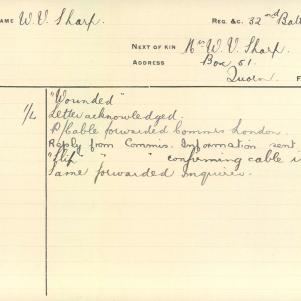 NAME W. V. Sharp. REG. &C. 32nd Batt
NEXT OF KIN Mrs W. V. Sharp.
ADDRESS Box 51.
Quorn. F
"Wounded"
1/L Letter acknowledged.
P/Cable forwarded Commis London.
Reply from Commis. Information sent
"Slip" " " confirming cable
Same forwarded Inquirer.